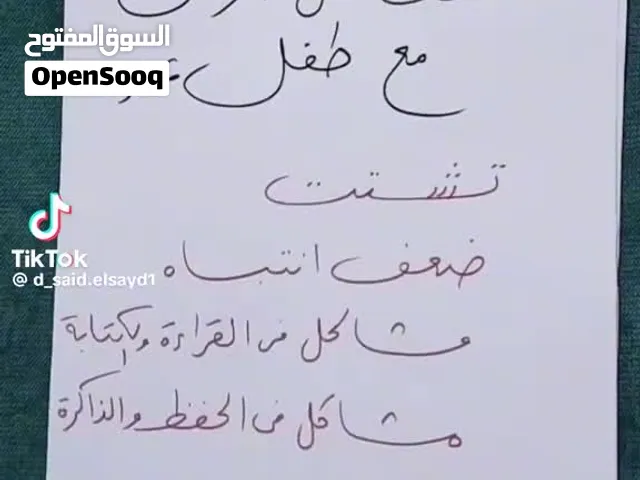 السوق المفتوح
OpenSooq
مع طفل
تشتت
ضعف انتباه
مشاكل فى القراءة والكتابة
مشاكل فى الحفظ والذاكرة
TikTok
@d_said.elsayd1